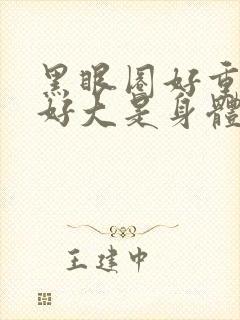 黑眼圈好重
好大是身體
王建中